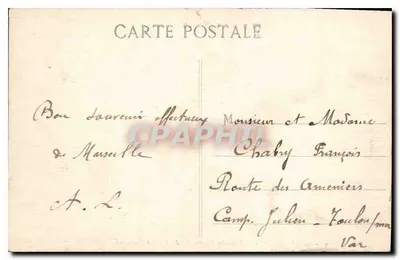 CARTE POSTALE
Bon souvenir affectueux
de Marseille
A. L.
Monsieur et Madame
Chabry François
Route des Ameniers
Camp. Julien - Toulon/mer
Var
CPAPHIL